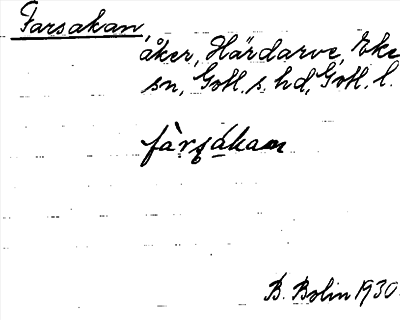 Farsakan,
åker, Härdarve, Eke
sn, Gotl. s. hd, Gotl. l.
fàrsákan
B. Bolin 1930.